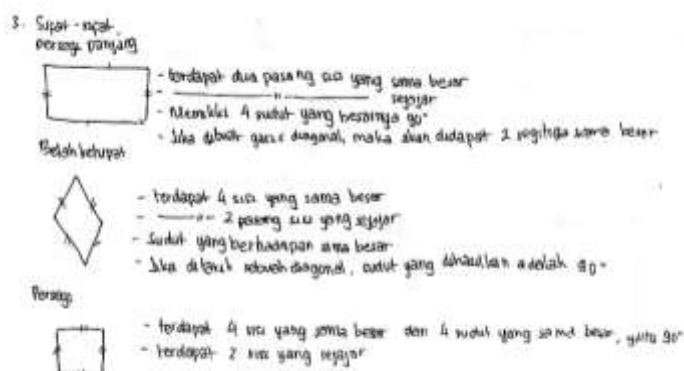 3. Sifat-sifat
persegi panjang
- terdapat dua pasang sisi yang sama besar
- ———— " ———— sejajar
- Memiliki 4 sudut yang besarnya 90°
- Jika dibuat garis diagonal, maka akan didapat 2 segitiga sama besar
Belah ketupat
- terdapat 4 sisi yang sama besar
- —— " — 2 pasang sisi yang sejajar
- Sudut yang berhadapan sama besar
- Jika ditarik sebuah diagonal, sudut yang dihasilkan adalah 90°
Persegi
- terdapat 4 sisi yang sama besar dan 4 sudut yang sama besar, yaitu 90°
- terdapat 2 sisi yang sejajar